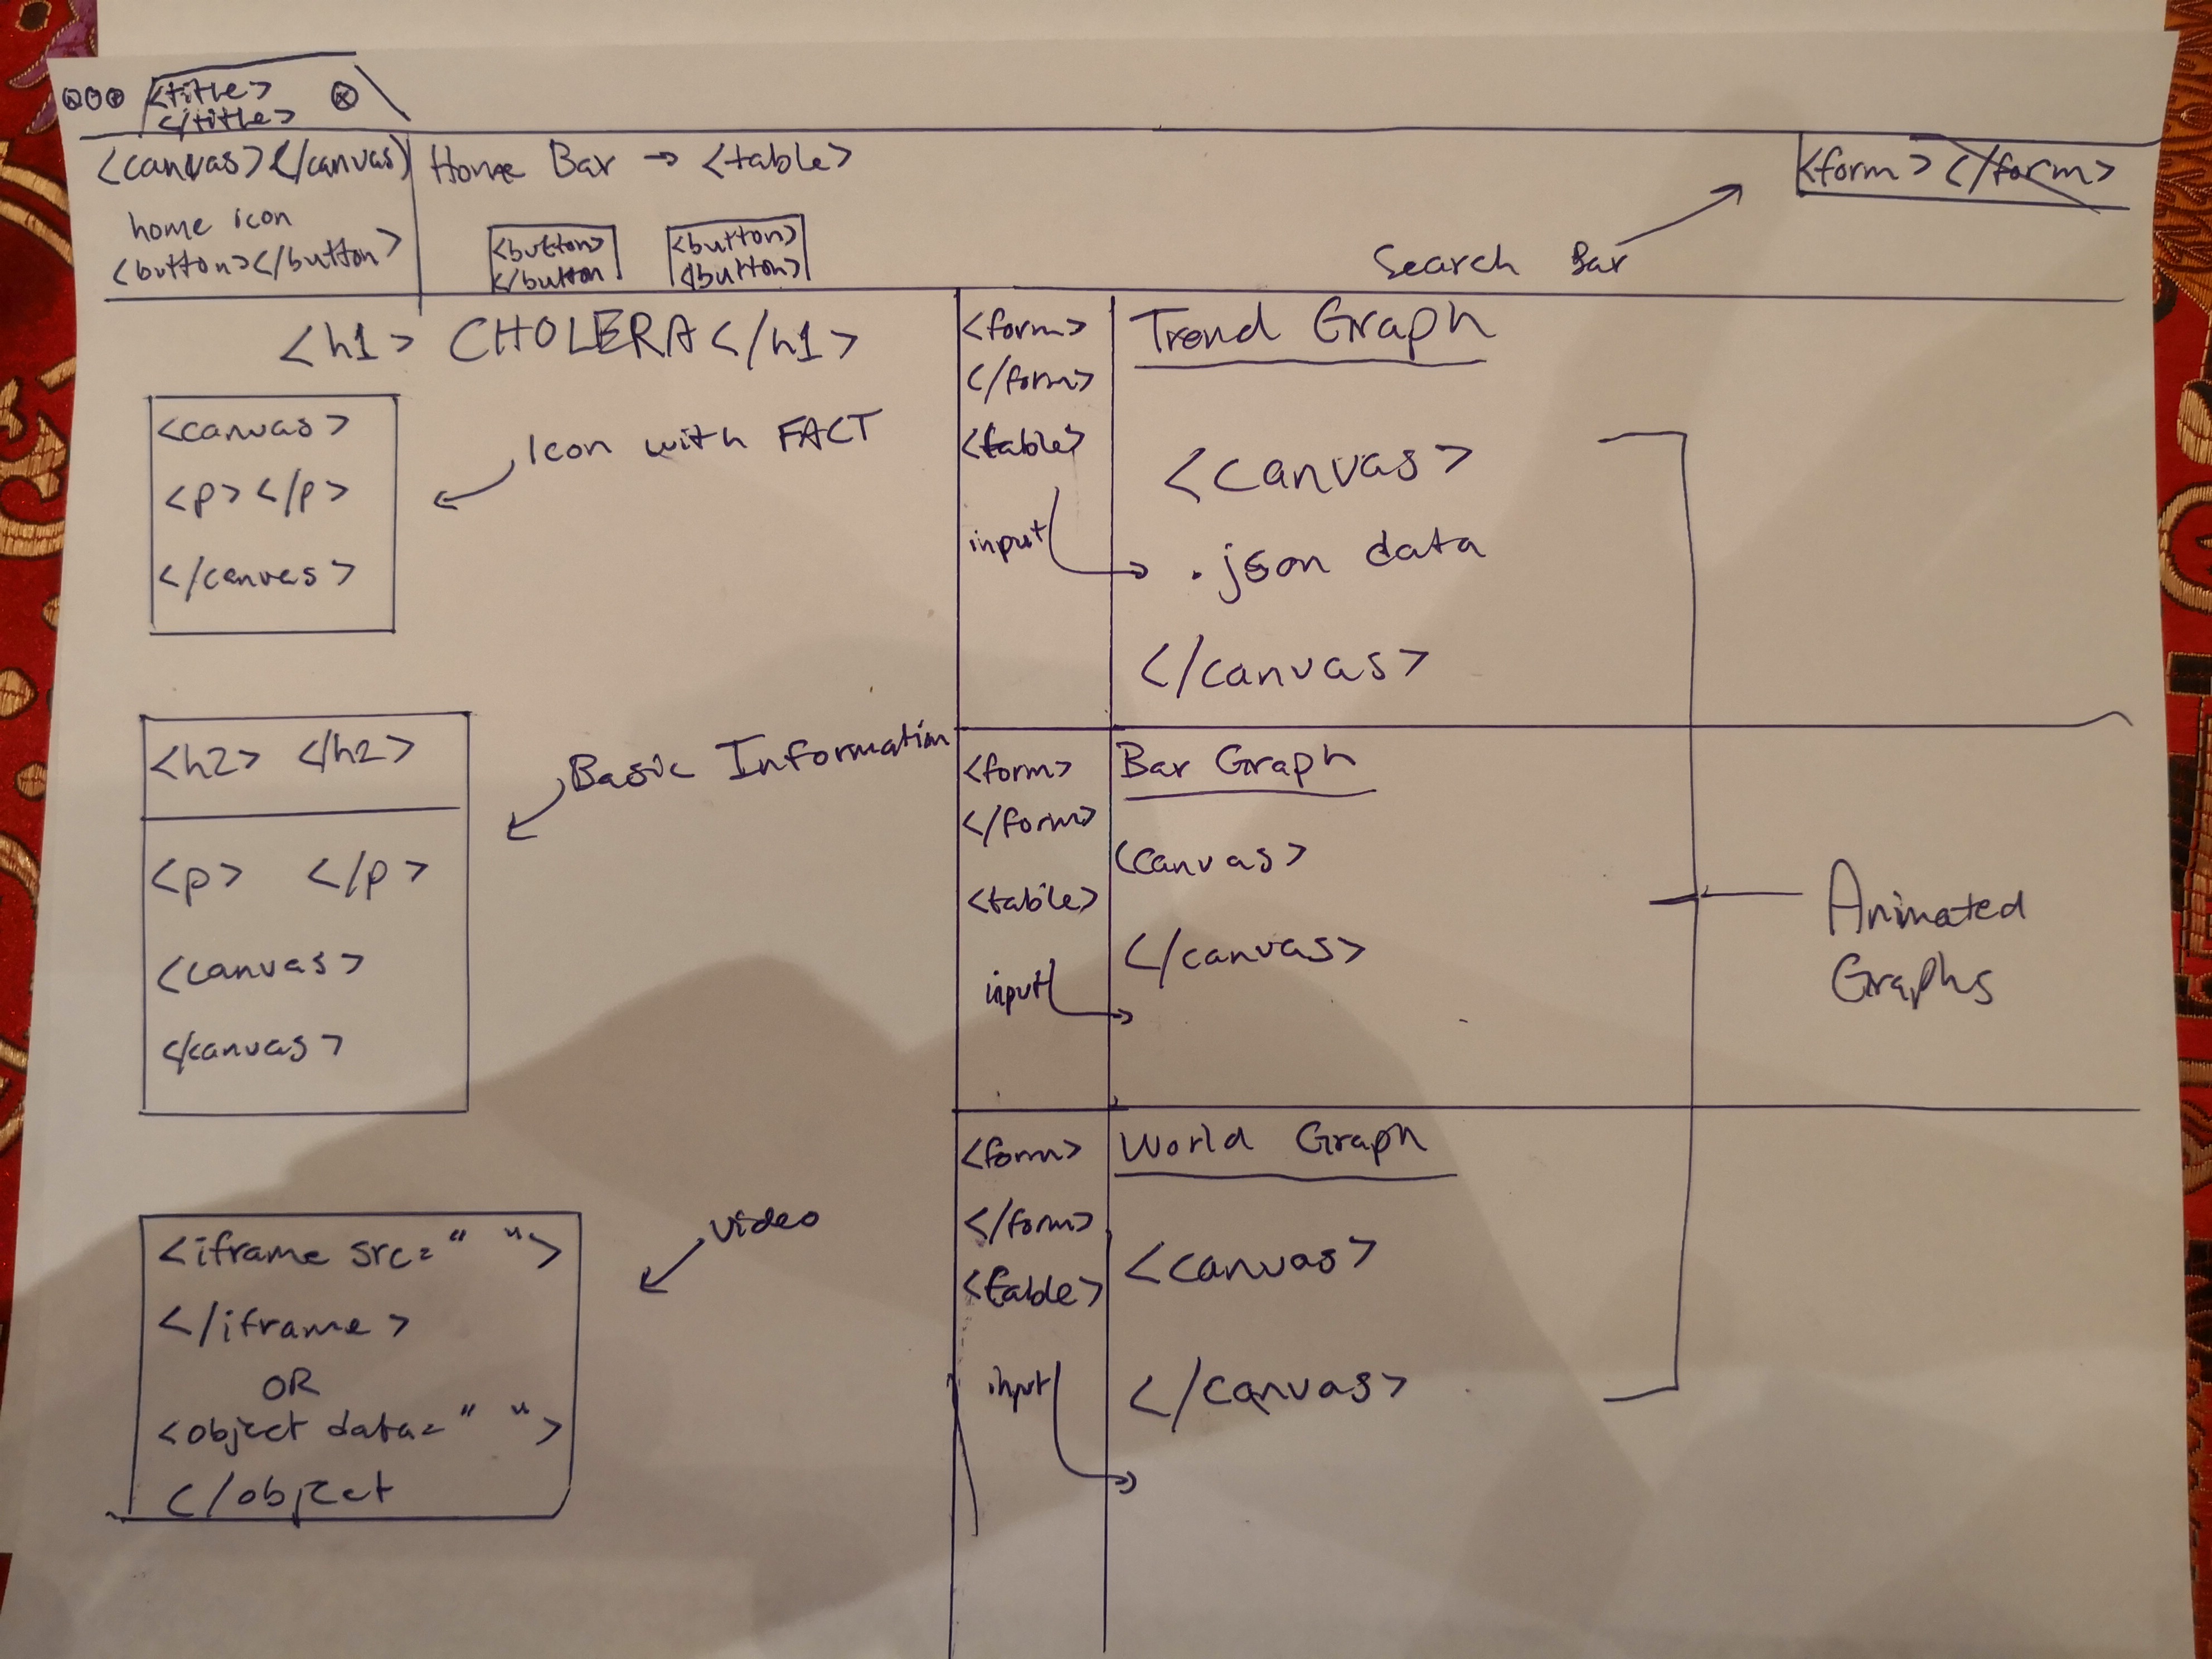 <title>
</title>
<canvas></canvas>
home icon
<button></button>
Home Bar → <table>
<button>
</button
<button>
</button>
Search Bar
<form></form>
<h1> CHOLERA </h1>
<canvas>
<p></p>
</canvas>
Icon with FACT
<h2> </h2>
<p> </p>
<canvas>
</canvas>
Basic Information
<iframe src=" ">
</iframe>
OR
<object data=" ">
</object
video
<form>
</form>
<table>
input
Trend Graph
<canvas>
.json data
</canvas>
<form>
</form>
<table>
input
Bar Graph
<canvas>
</canvas>
<form>
</form>
<table>
input
World Graph
<canvas>
</canvas>
Animated
Graphs